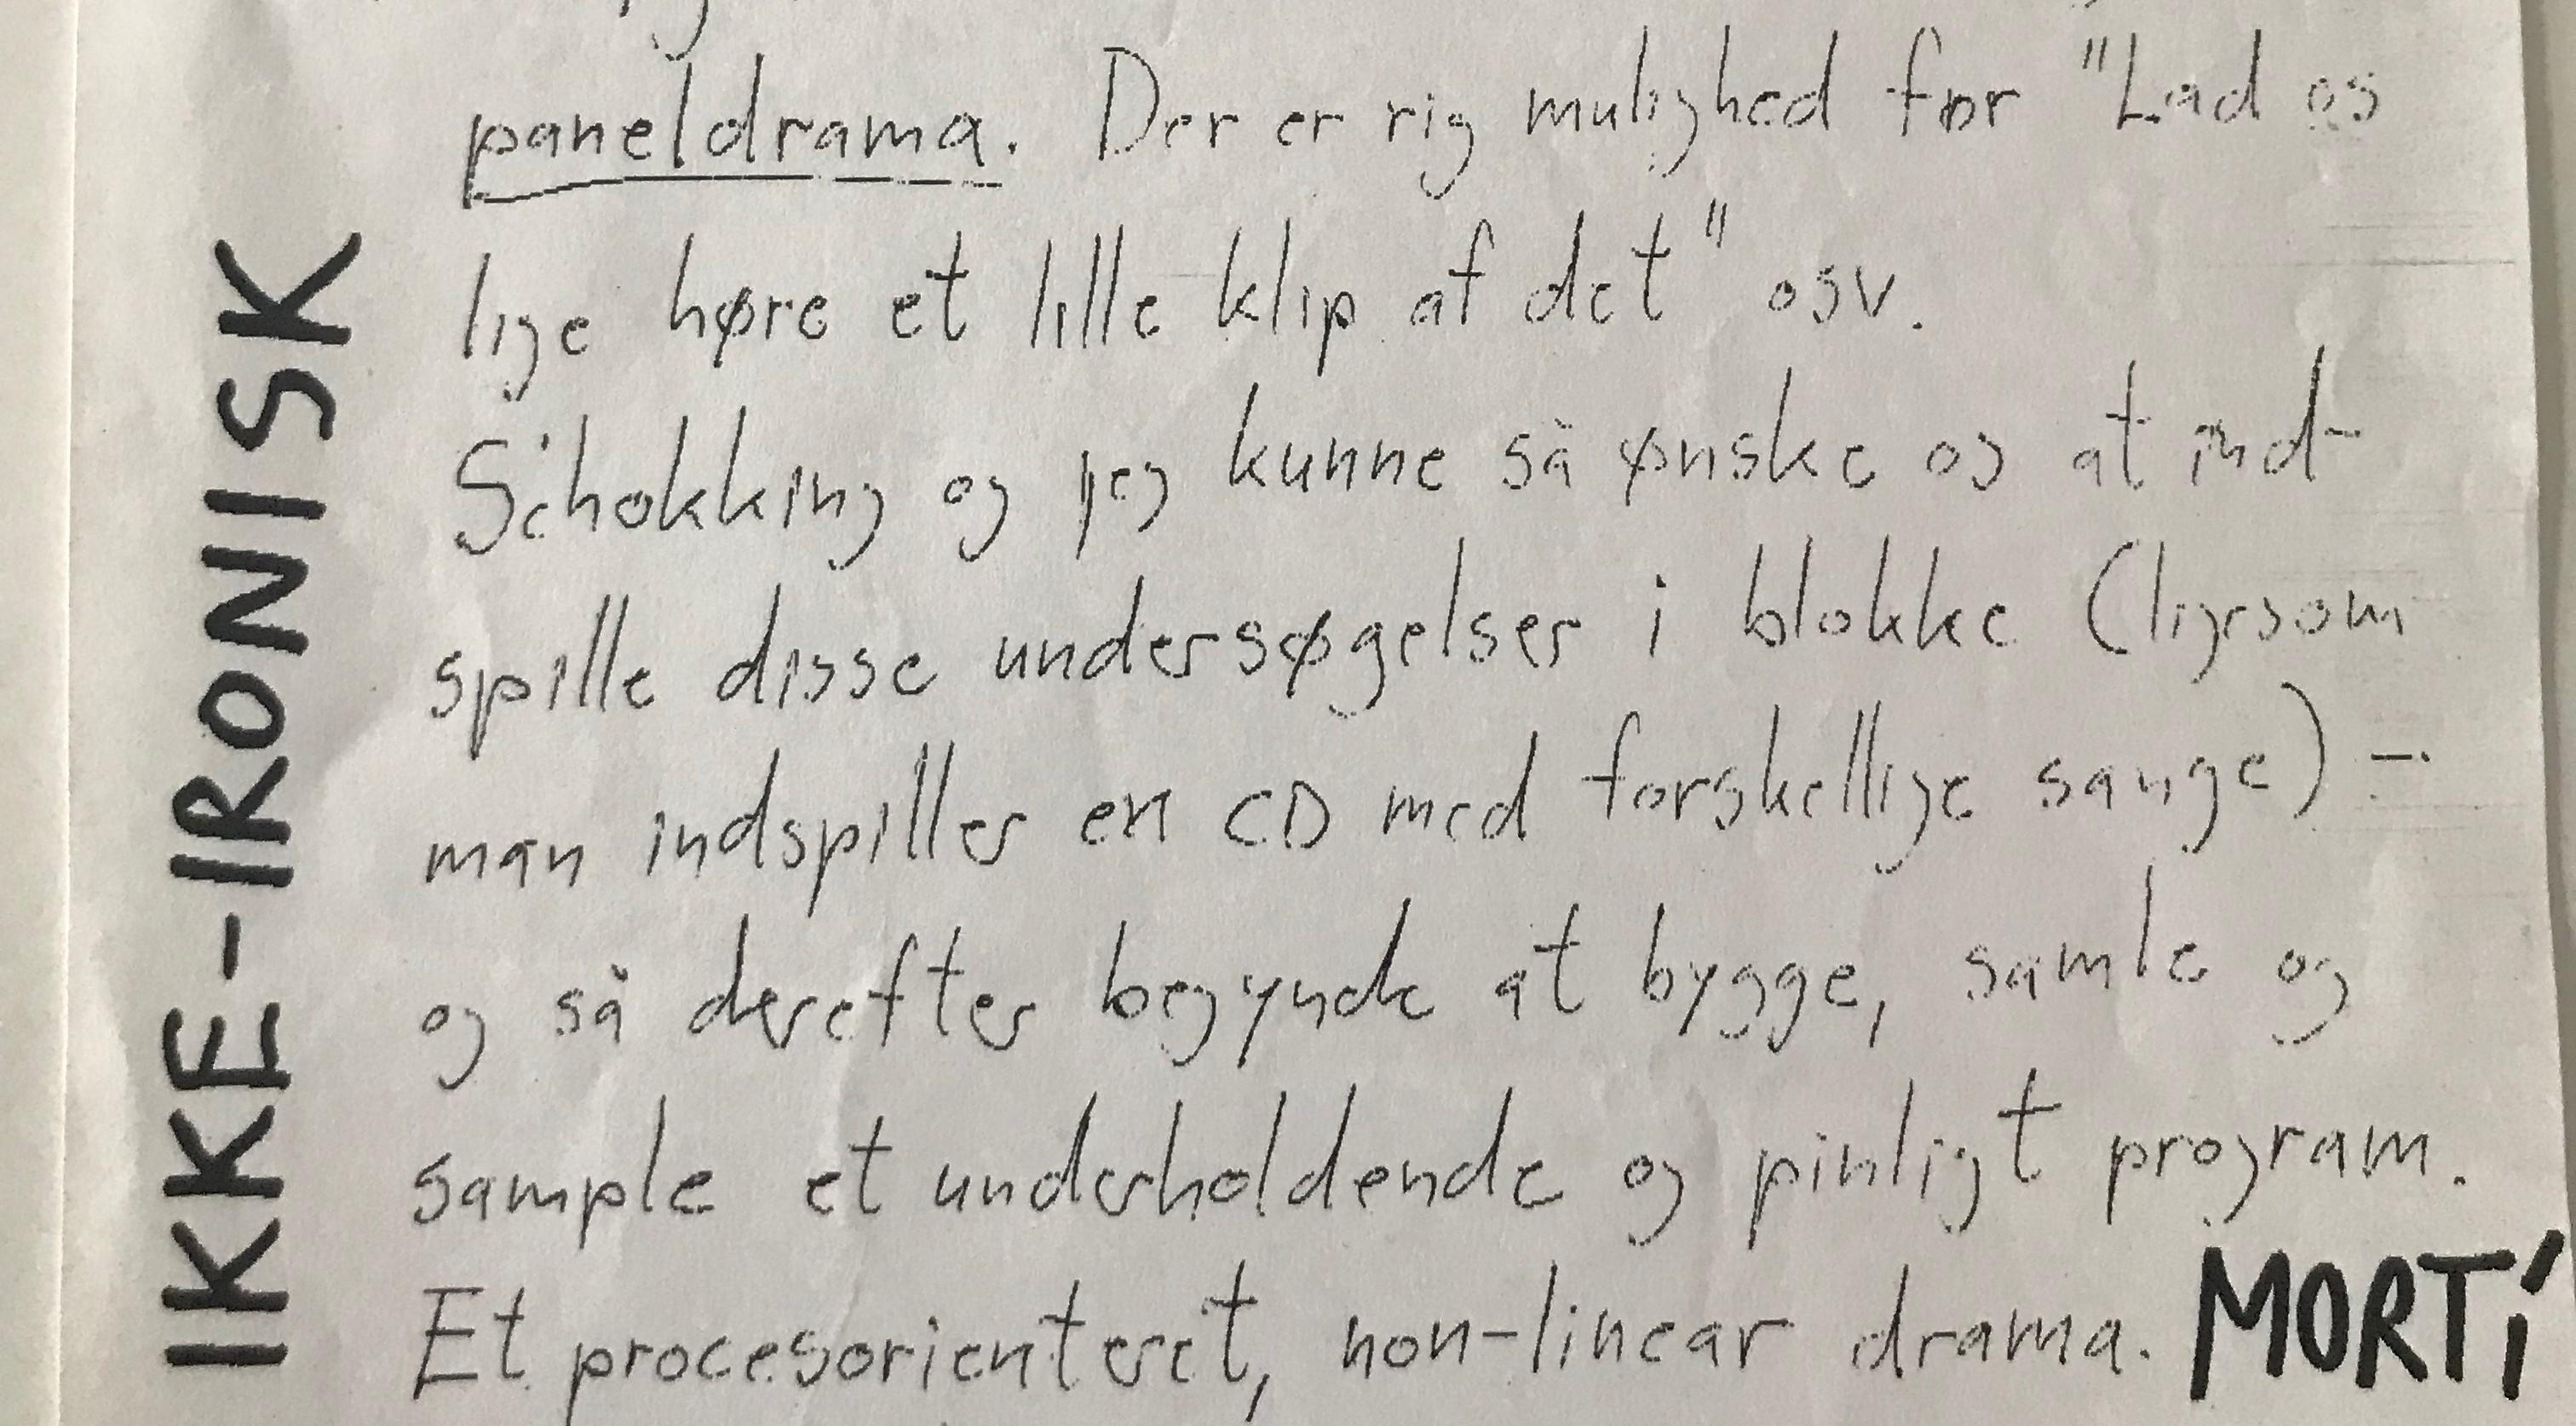 paneldrama. Der er rig mulighed for "Lad os
lige høre et lille klip af det" osv.
Schokking og jeg kunne så ønske os at ind-
spille disse undersøgelser i blokke (ligesom
man indspiller en CD med forskellige sange) -
og så derefter begynde at bygge, samle og
sample et underholdende og pinligt program.
Et procesorienteret, non-linear drama. MORTÍ
IKKE-IRONISK